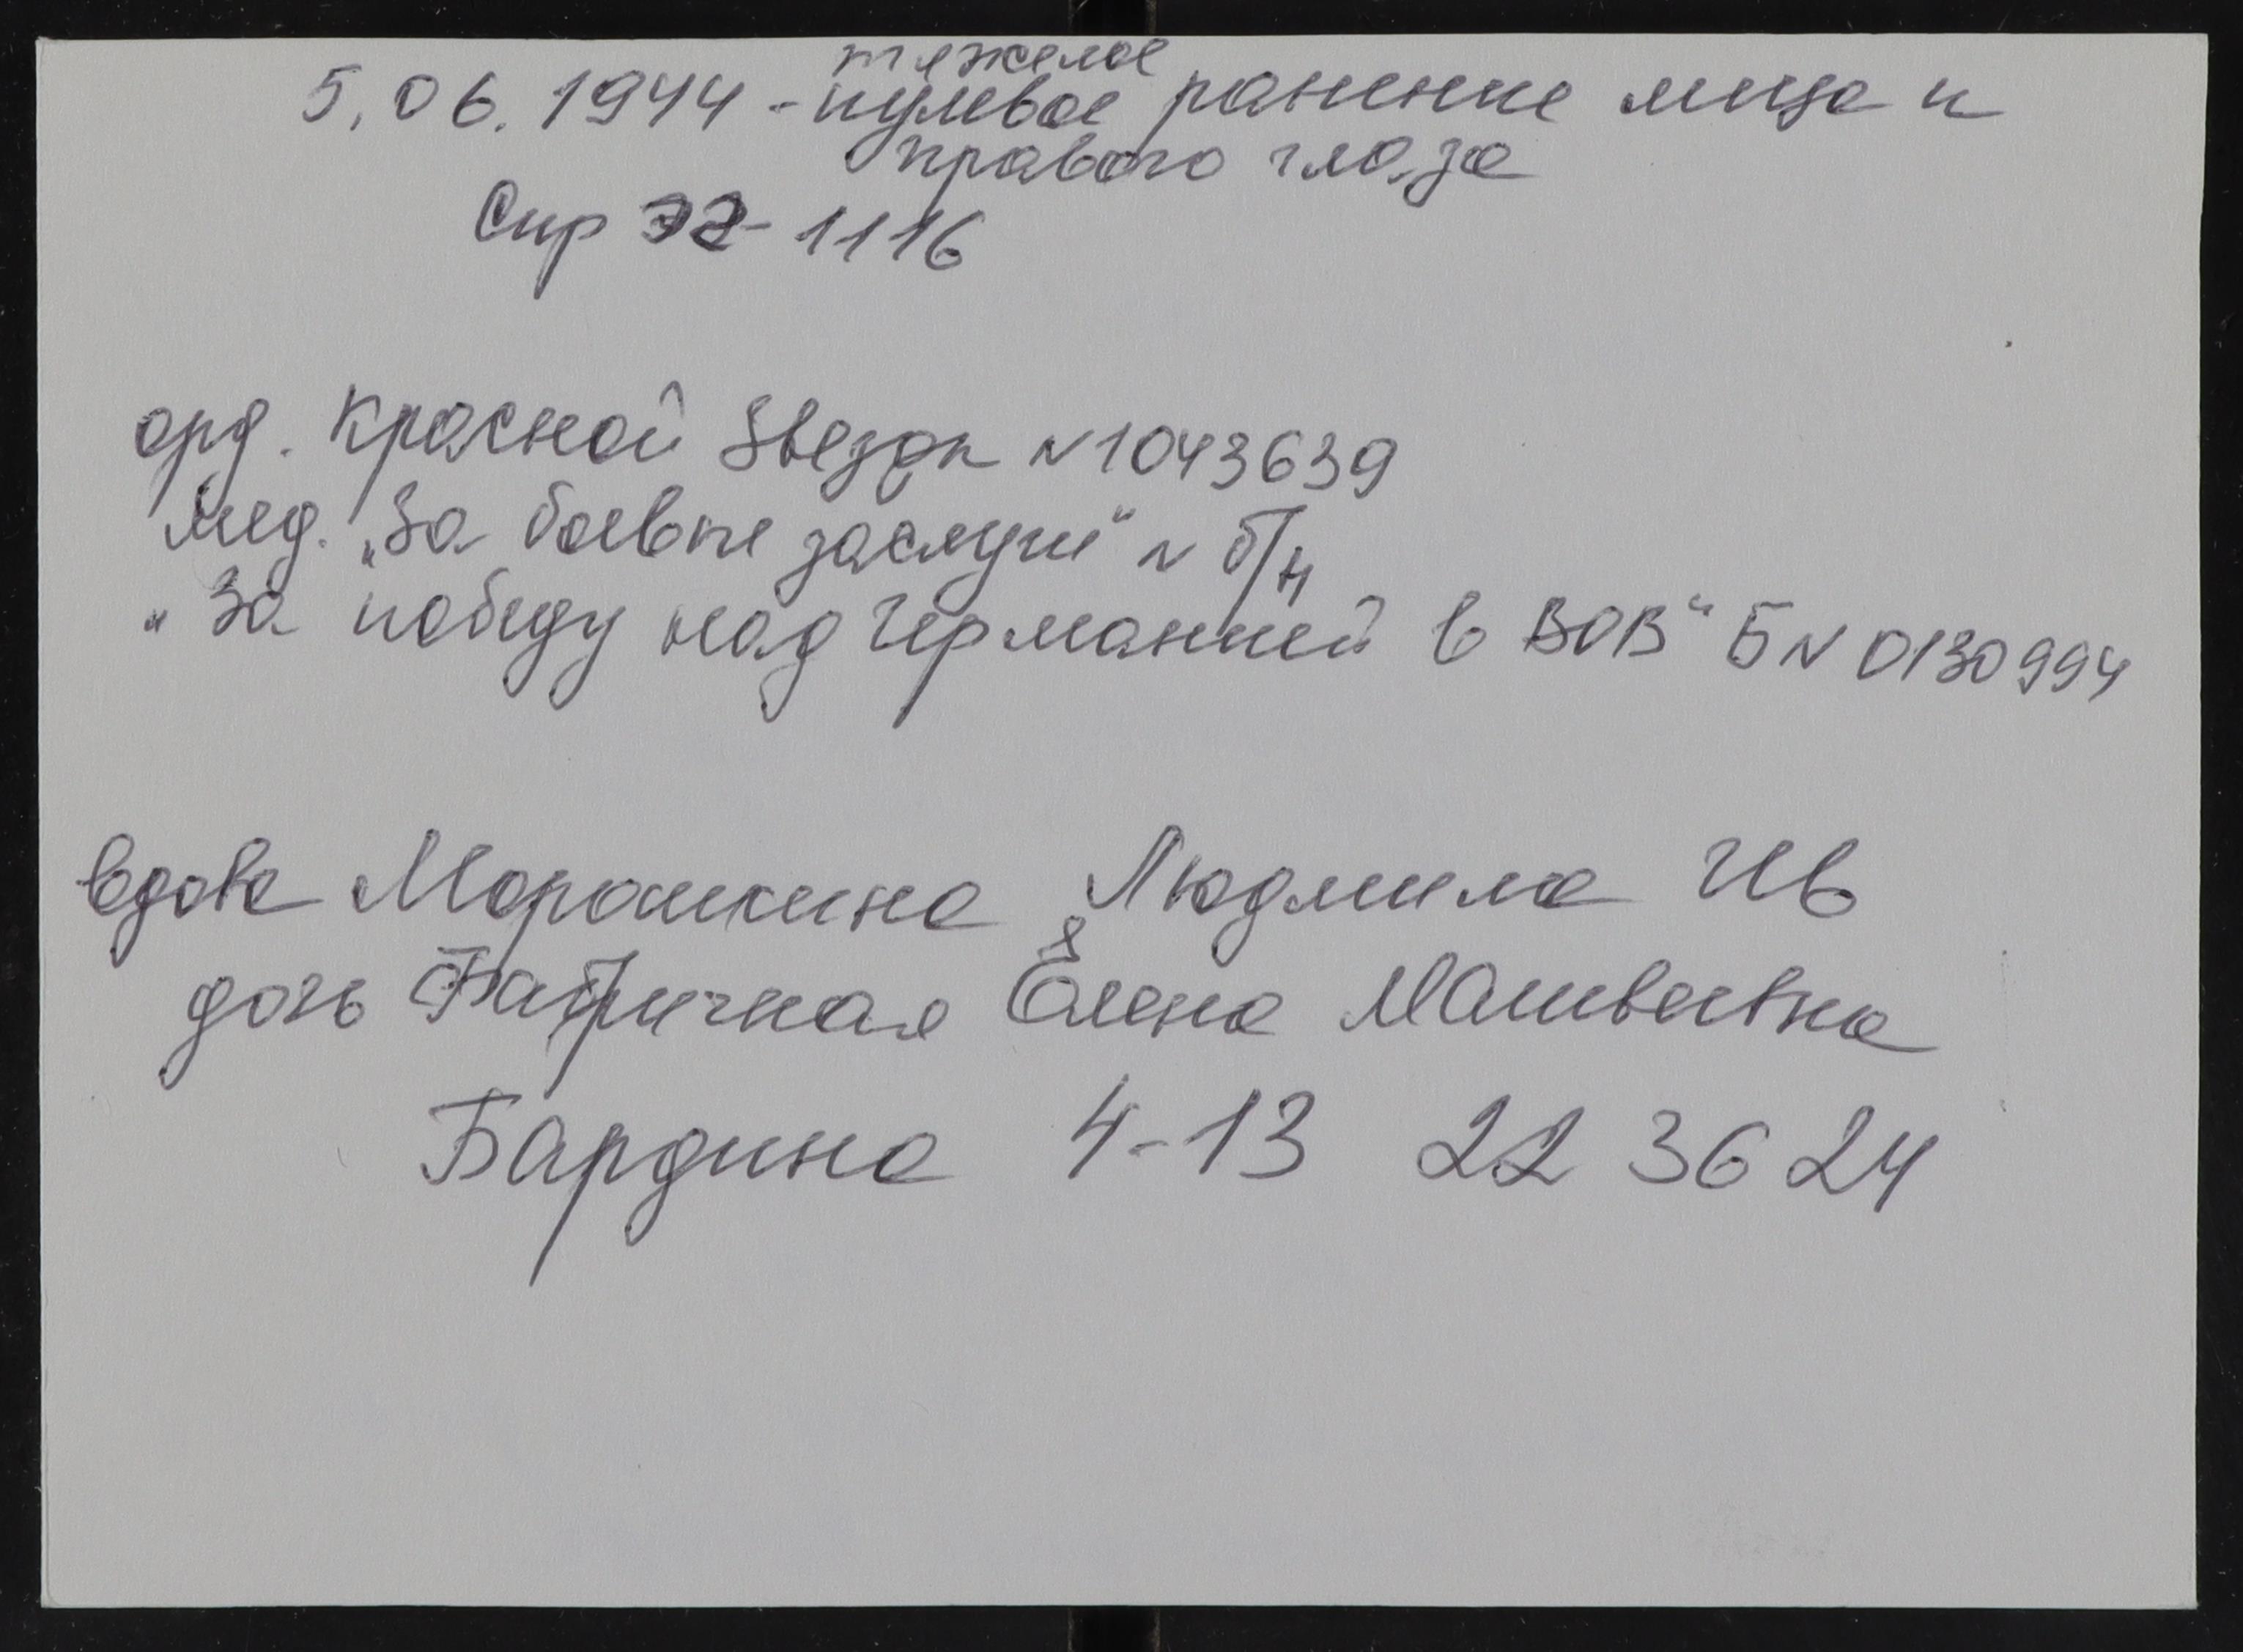 тяжелое
5.06.1944 - пулевое ранение лица и
правого глаза
Спр ЭГ-1116
орд. Красной Звезды N 1043639
Мед. „За боевые заслуги“ N б/н
„За победу над Германией в ВОВ“ Б N 0130994
вдова Морошкина Людмила Ив
дочь Фабричная Елена Матвеевна
Бардина 4-13 22 36 24